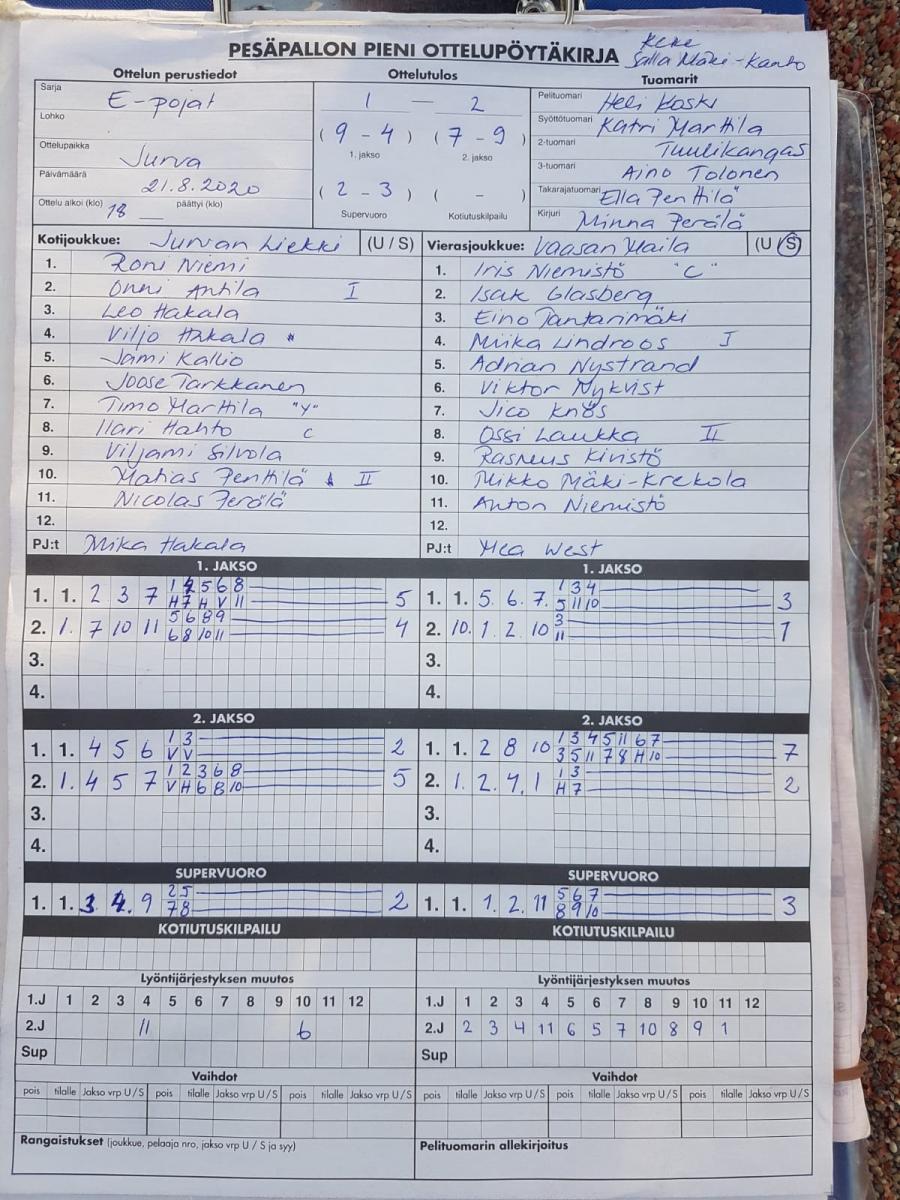 PESÄPALLON PIENI OTTELUPÖYTÄKIRJA
Salla Mäki-Kanto
Ottelun perustiedot Ottelutulos Tuomarit
Sarja E-pojat
Lohko
Ottelupaikka Jurva
Päivämäärä 21.8.2020
Ottelu alkoi (klo) 18 päättyi (klo)
1 — 2
( 9 - 4 ) ( 7 - 9 )
1. jakso 2. jakso
( 2 - 3 ) ( - )
Supervuoro Kotiutuskilpailu
Pelituomari Heli Koski
Syöttötuomari Katri Marttila
2-tuomari Tuulikangas
3-tuomari Aino Tolonen
Takarajatuomari Ella Penttilä
Kirjuri Minna Perälä
Kotijoukkue: Jurvan Liekki (U / S)
1. Roni Niemi
2. Onni Antila I
3. Leo Hakala
4. Viljo Hakala
5. Jami Kallio
6. Joose Tarkkanen
7. Timo Marttila "Y"
8. Ilari Hahto C
9. Viljami Silvola
10. Matias Penttilä II
11. Nicolas Perälä
12.
PJ:t Mika Hakala
Vierasjoukkue: Vaasan Maila (U / S)
1. Iris Niemistö "C"
2. Isak Glasberg
3. Eino Pantarimäki
4. Miika Lindroos I
5. Adrian Nystrand
6. Viktor Nykvist
7. Jico Knös
8. Ossi Laukka II
9. Rasmus Kivistö
10. Mikko Mäki-Krekola
11. Anton Niemistö
12.
PJ:t Mea West
1. JAKSO
1. 1. 2 3 7 5
2. 1. 7 10 11 5 6 8 9 4
6 8 10 11
3.
4.
1. JAKSO
1. 1. 5. 6. 7. 1 3 4 3
5 11 10
2. 10. 1. 2. 10 3 1
11
3.
4.
2. JAKSO
1. 1. 4 5 6 1 3 2
V V
2. 1. 4 5 7 1 2 3 6 8 5
V H 6 8 10
3.
4.
2. JAKSO
1. 1. 2 8 10 1 3 4 5 11 6 7 7
3 5 11 7 8 H 10
2. 1. 2. 1 1 3 2
H 7
3.
4.
SUPERVUORO
1. 1. 3 4. 9 2 5 2
7 8
SUPERVUORO
1. 1. 1. 2. 11 5 6 7 3
8 9 10
KOTIUTUSKILPAILU
KOTIUTUSKILPAILU
Lyöntijärjestyksen muutos
1.J 1 2 3 4 5 6 7 8 9 10 11 12
2.J 11 6
Sup
Lyöntijärjestyksen muutos
1.J 1 2 3 4 5 6 7 8 9 10 11 12
2.J 2 3 4 11 6 5 7 10 8 9 1
Sup
Vaihdot
pois tilalle Jakso vrp U / S pois tilalle Jakso vrp U / S pois tilalle Jakso vrp U / S
Vaihdot
pois tilalle Jakso vrp U / S pois tilalle Jakso vrp U / S pois tilalle Jakso vrp U / S
Rangaistukset (joukkue, pelaaja nro, jakso vrp U / S ja syy)
Pelituomarin allekirjoitus